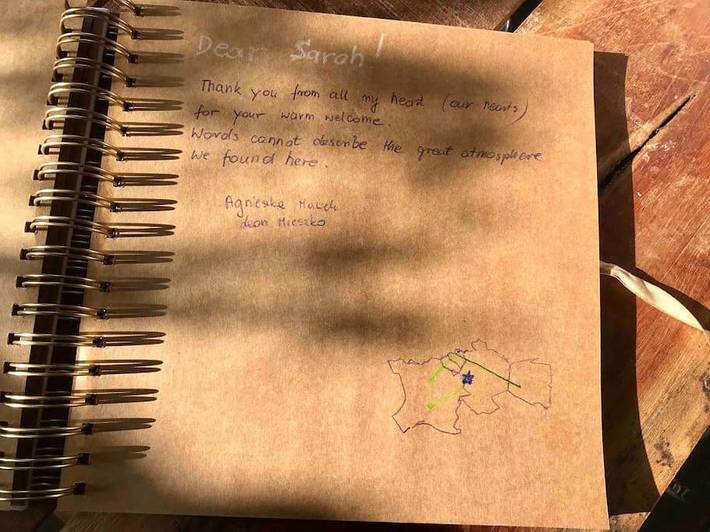 Dear Sarah!
Thank you from all my heart (our hearts)
for your warm welcome.
Words cannot describe the great atmosphere
we found here.
Agnieszka
Mieszko